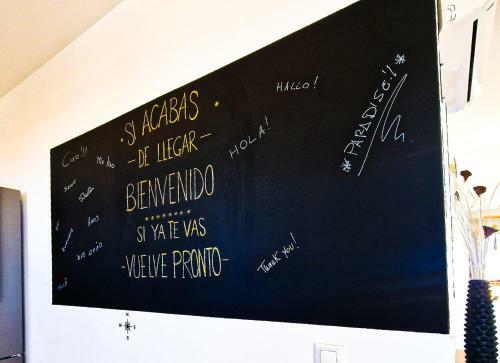 SI ACABAS
- DE LLEGAR -
BIENVENIDO
SI YA TE VAS
- VUELVE PRONTO -
Ciao!!!
HALLO!
HOLA!
*PARADISE!*
THANK YOU!
N
W E
S